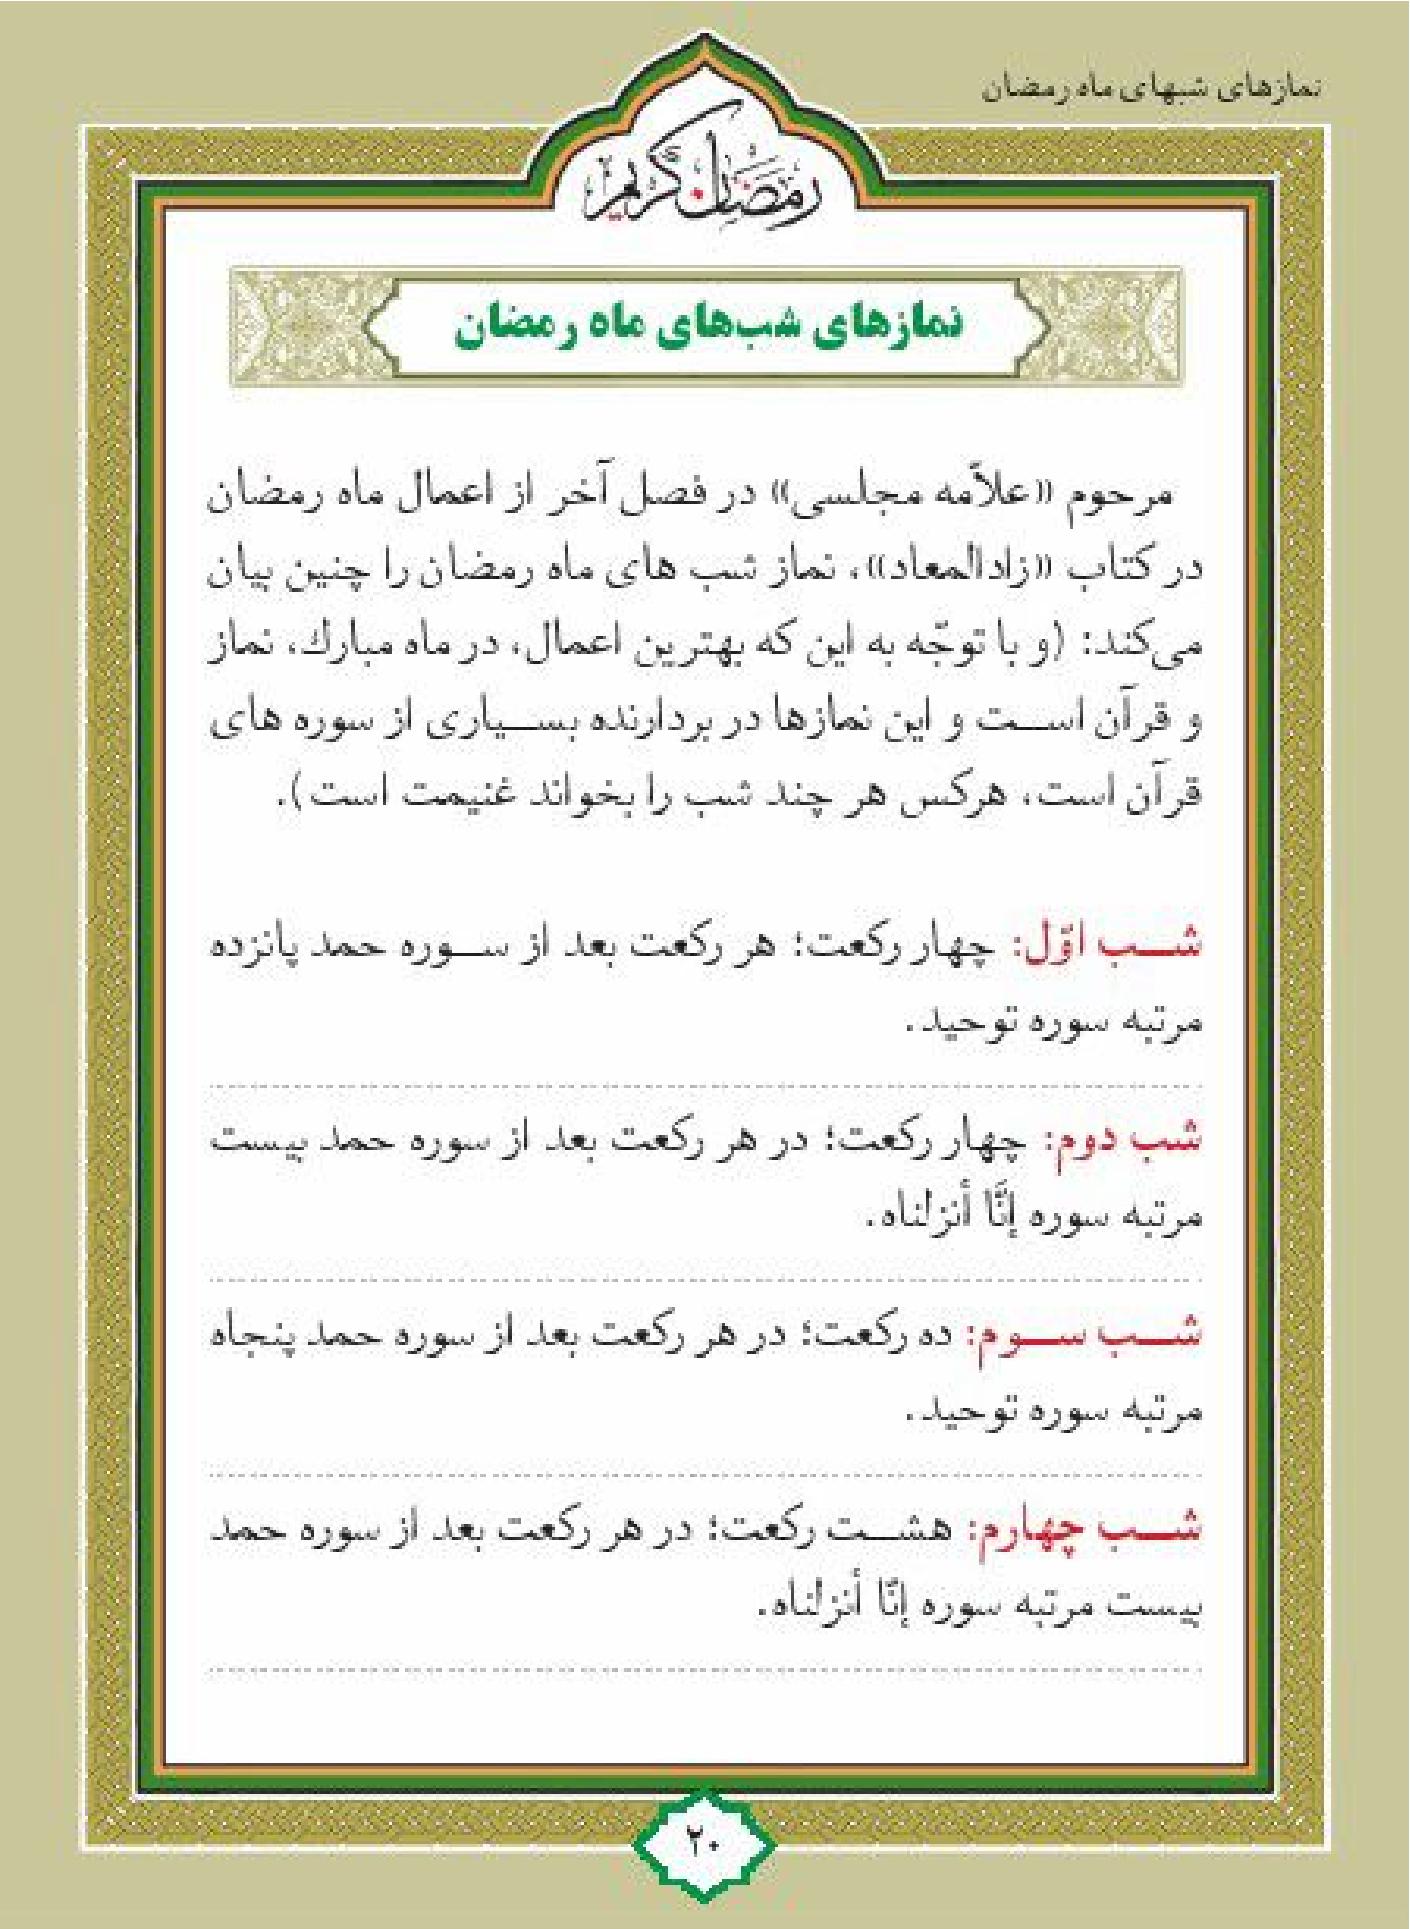 نمازهای شبهای ماه رمضان
رمضان کریم
نمازهای شب‌های ماه رمضان
مرحوم «علاّمه مجلسی» در فصل آخر از اعمال ماه رمضان
در کتاب «زادالمعاد»، نماز شب های ماه رمضان را چنین بیان
می‌کند: (و با توجّه به این که بهترین اعمال، در ماه مبارك، نماز
و قرآن اســت و این نمازها در بردارنده بســیاری از سوره های
قرآن است، هرکس هر چند شب را بخواند غنیمت است).
شــب اوّل: چهار رکعت؛ هر رکعت بعد از ســوره حمد پانزده
مرتبه سوره توحید.
شب دوم: چهار رکعت؛ در هر رکعت بعد از سوره حمد بیست
مرتبه سوره إنَّا أنزلناه.
شــب ســوم: ده رکعت؛ در هر رکعت بعد از سوره حمد پنجاه
مرتبه سوره توحید.
شــب چهارم: هشــت رکعت؛ در هر رکعت بعد از سوره حمد
بیست مرتبه سوره إنّا أنزلناه.
۲۰